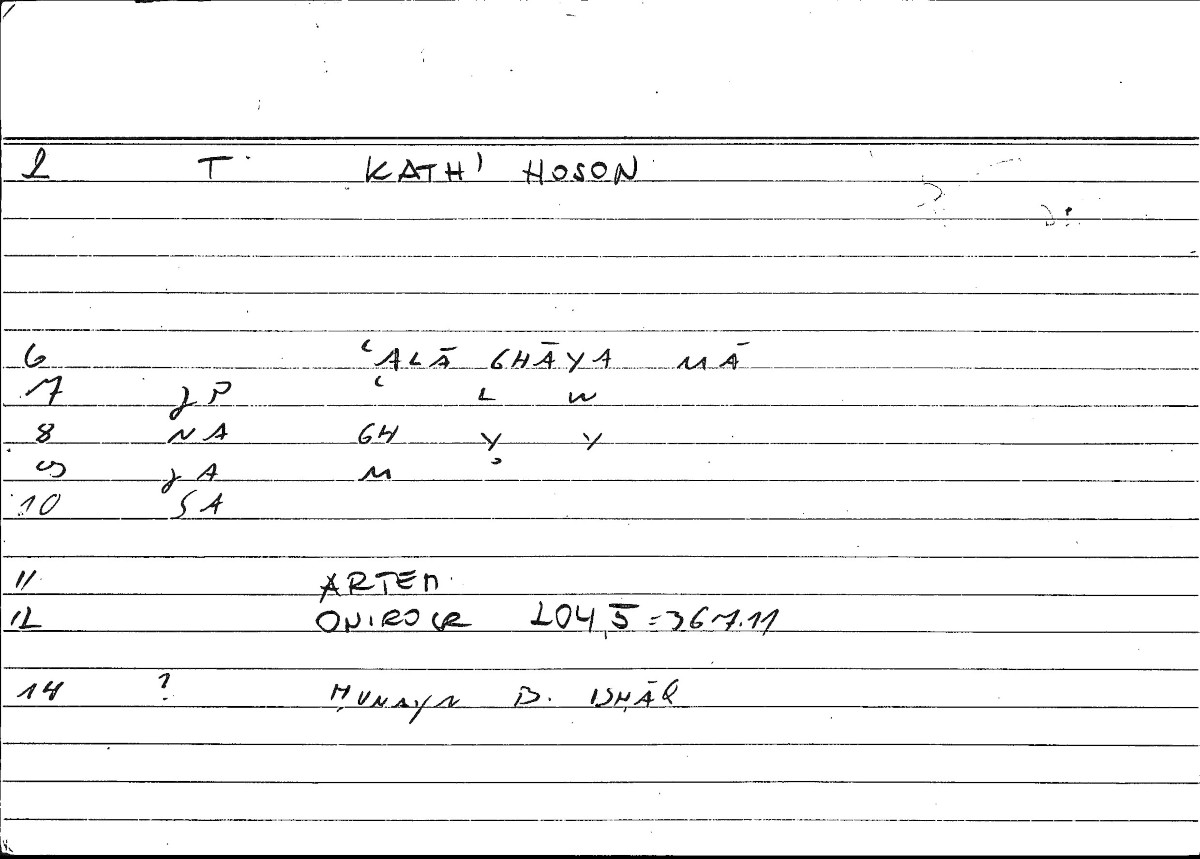 2 T KATH' HOSON
6 ʿALĀ GHĀYA MĀ
7 JP ʿ L W
8 NA GH Y Y
9 JA M
10 SA
11 ARTEM
12 ONIROCR 204,5 = 367.11
14 ? ḤUNAYN B. ISḤĀQ